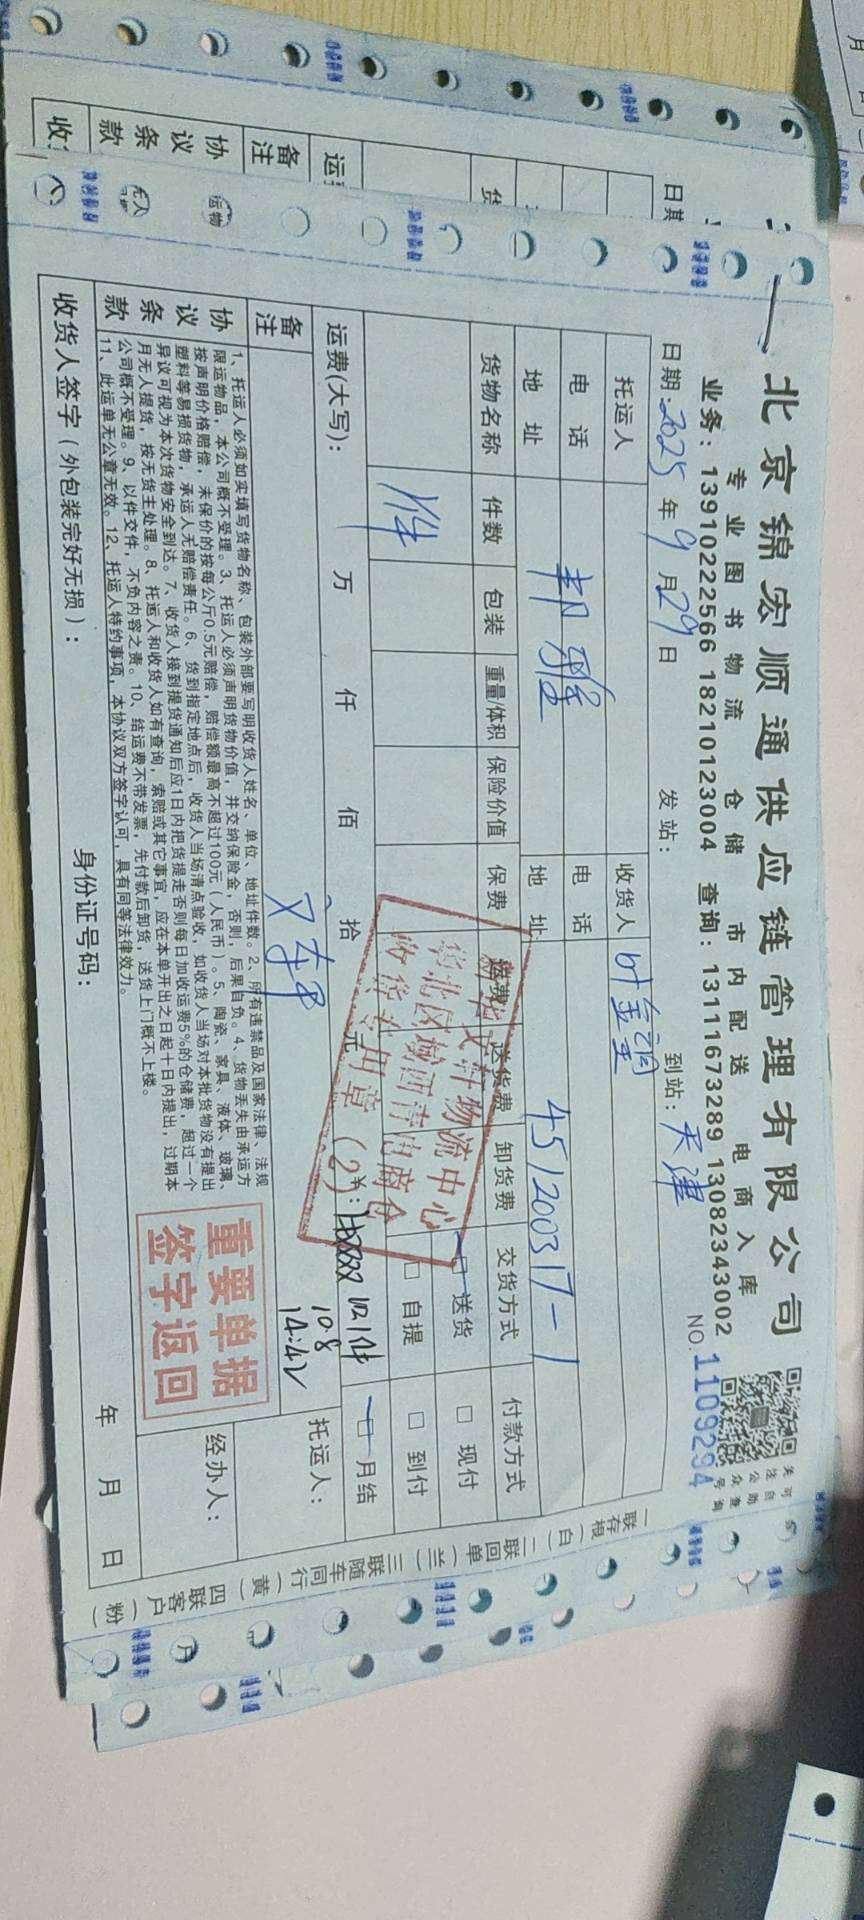 北京锦宏顺通供应链管理有限公司
专业图书物流 仓储 市内配送 电商入库
业务：13910222566 18210123004 查询：13111673289 13082343002
关注公众号
可自助查询
日期：2025年9月29日 发站： 到站：天津 NO.1109294
托运人 收货人
电话 电话
地址 地址 451200317-1
货物名称 件数 包装 重量/体积 保险价值 保费 运费 送货费 卸货费 交货方式 付款方式
1件 送货 现付
自提 到付
运费(大写)： 万 仟 佰 拾 元 月结
文轩物流中心
收货专用章（2）
备注
10.8
14:42
托运人：
经办人：
协议条款
1、托运人必须如实填写货物名称、包装外部要写明收货人姓名、单位、地址件数。2、所有违禁品及国家法律、法规
限运物品，本公司概不受理。3、托运人必须声明货物价值，并交纳保险金，否则，后果自负。4、货物丢失由承运方
按声明价格赔偿，未保价的按每公斤0.5元赔偿，赔偿额最高不超过100元（人民币）。5、陶瓷、家具、液体、玻璃、
塑料等易损货物，承运人无赔偿责任。6、货到指定地点后，收货人当场清点验收，如收货人当场对本批货物没有提出
异议可视为本次货物安全到达。7、收货人接到提货通知后应1日内把货提走否则每日加收运费5%的仓储费，超过一个
月无人提货，按无货主处理。8、托运人和收货人如有查询，索赔或其它事宜，应在本单开出之日起十日内提出，过期本
公司概不受理。9、以件交件，不负内容之责。10、结运费不带发票，先付款后卸货，送货上门概不上楼。
11、此运单无公章无效。12、托运人特约事项，本协议双方签字认可，具有同等法律效力。
重要单据
签字返回
收货人签字（外包装完好无损）： 身份证号码： 年 月 日
一联存根（白）二联回单（兰）三联随车同行（黄）四联客户（粉）